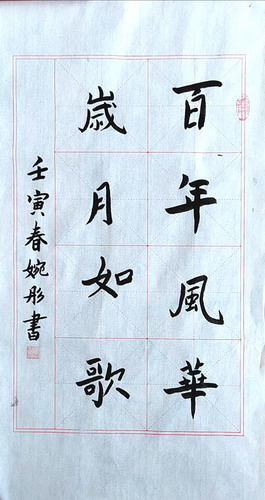 百年風華
歲月如歌
壬寅春婉彤書